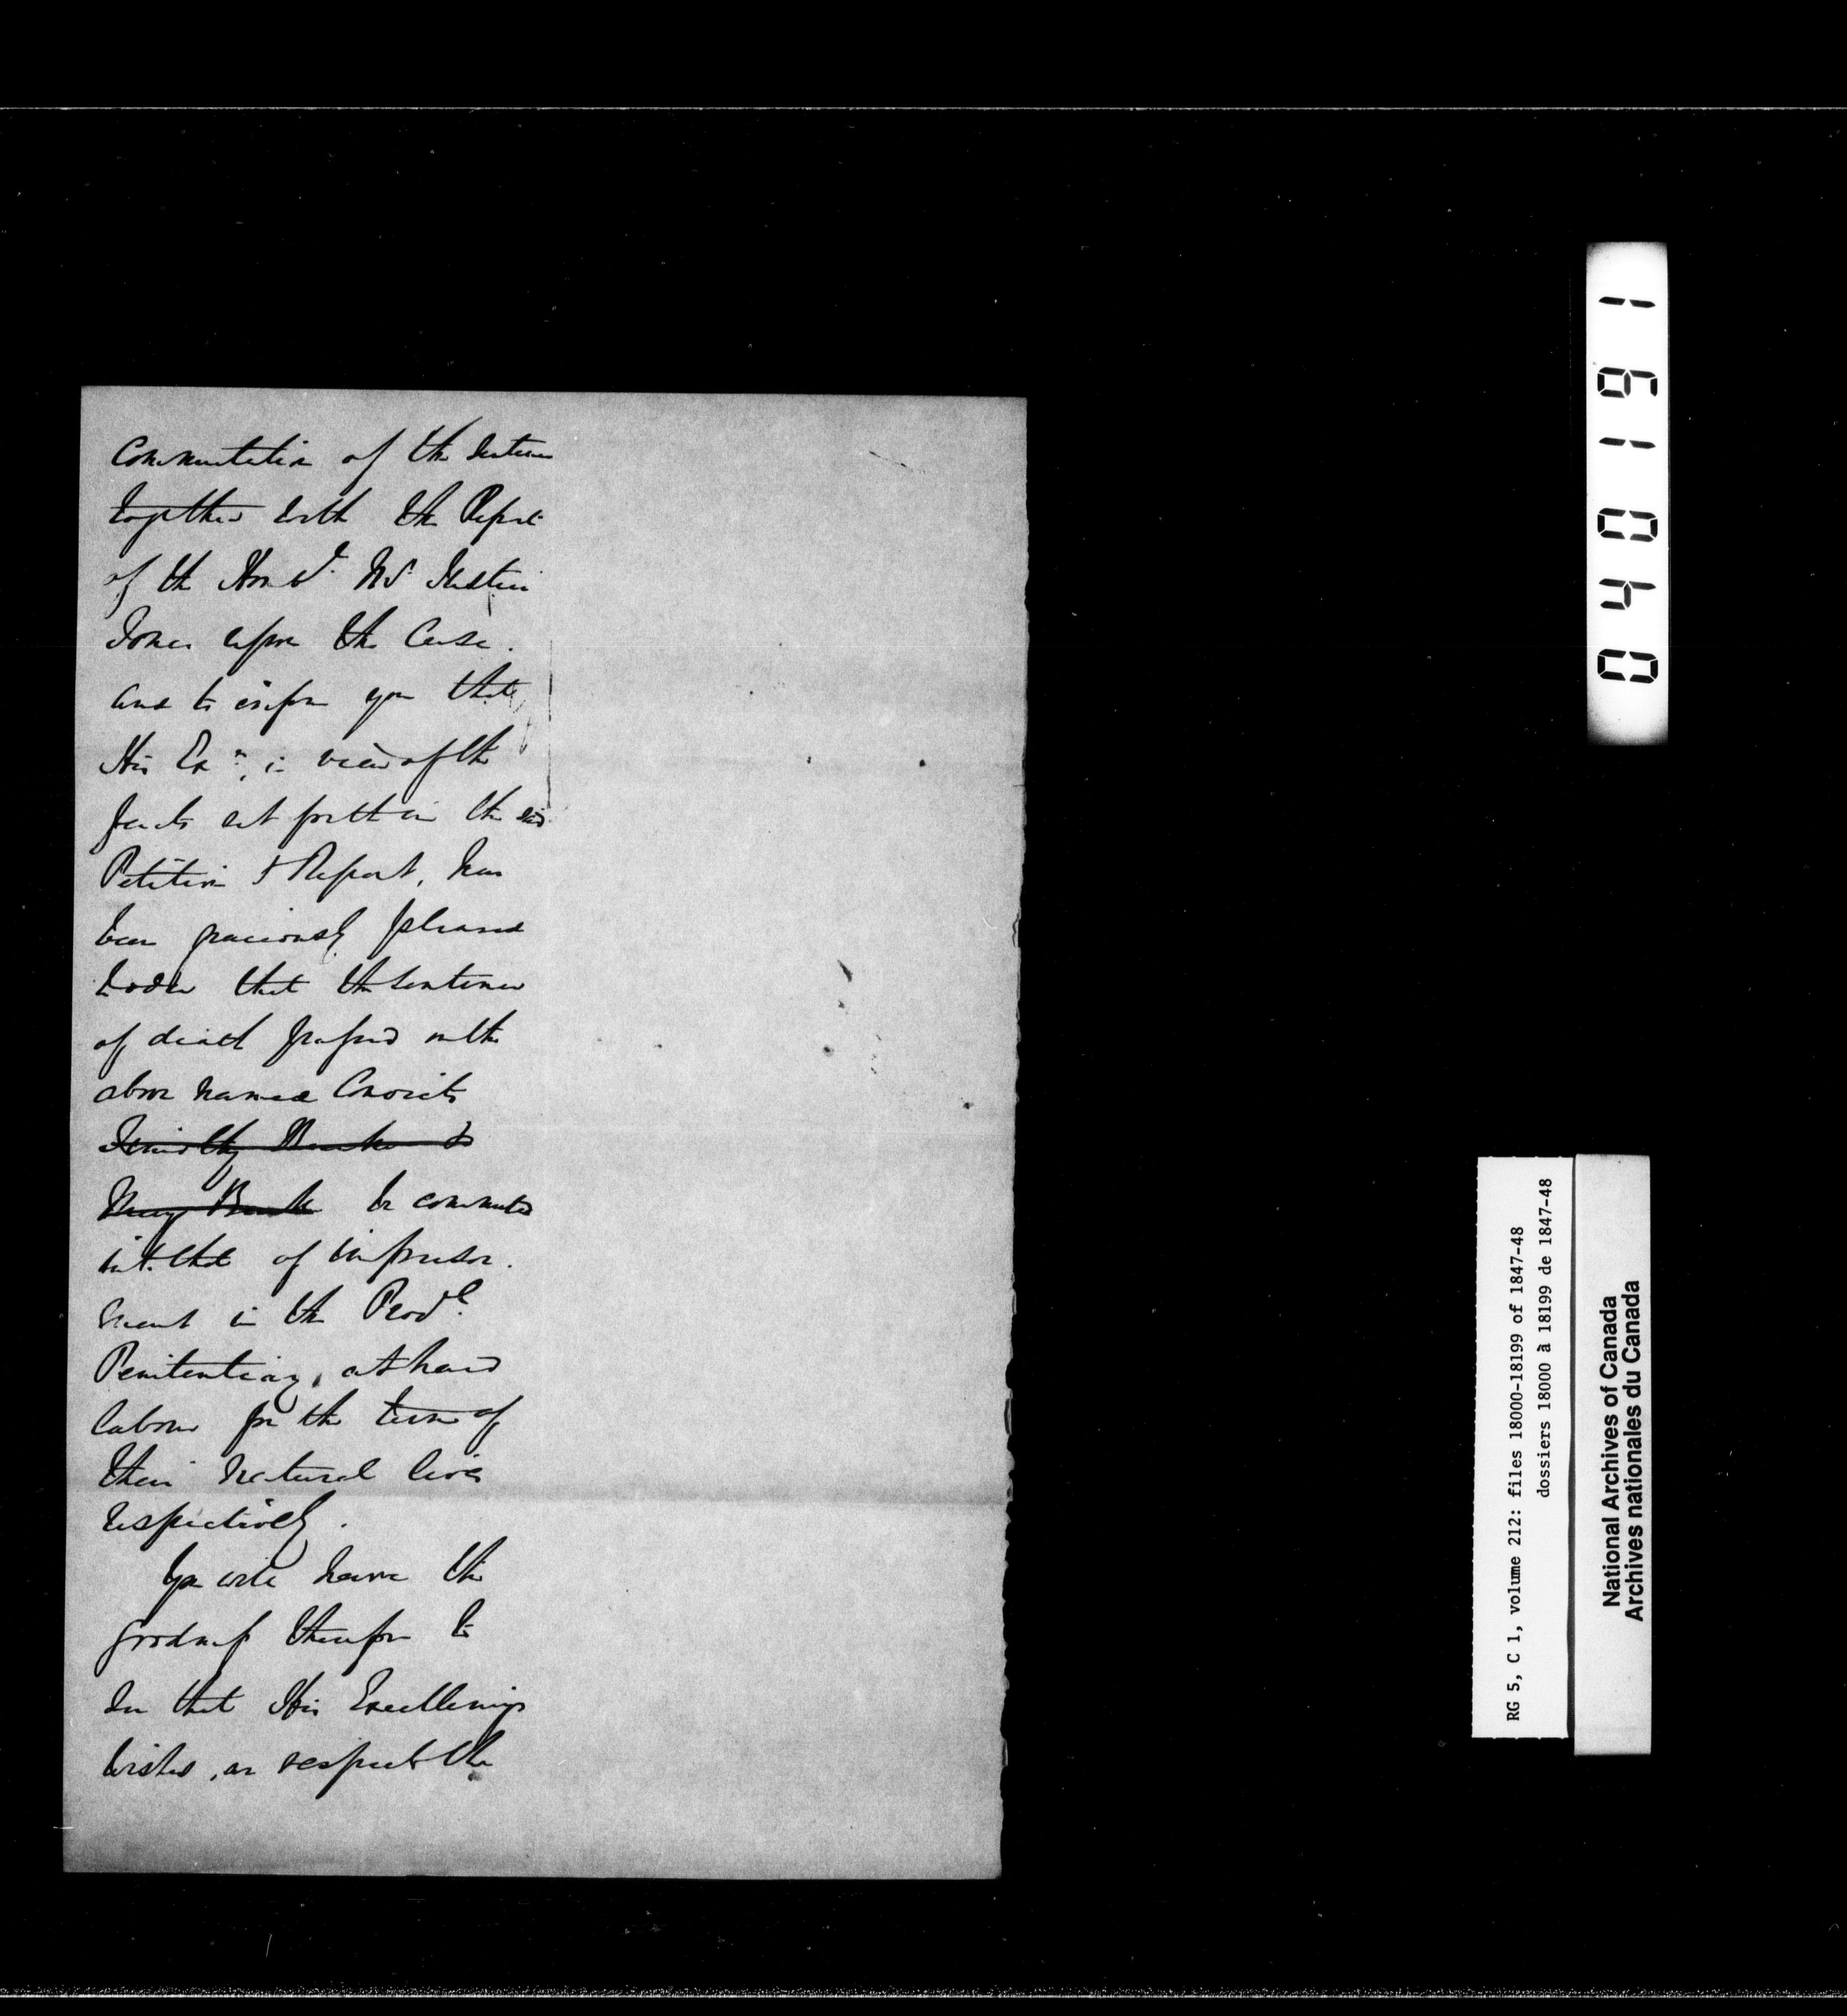 Commutation of the Sentence
together with the Report
of the Honble. Mr. Justice
Jones upon the Case.
and to inform you that
His Exy., in view of the
facts set forth in the said
Petition & Report, has
been graciously pleased
to order that the sentence
of death passed on the
above named Convicts
Timothy Burke &
Mary Burke be commuted
into that of imprison-
ment in the Provl.
Penitentiary, at hard
labour for the term of
their natural lives
respectively.
You will have the
goodness therefore to
see that His Excellency's
wishes, in respect to the
04 01 91
RG 5, C 1, volume 212: files 18000-18199 of 1847-48
dossiers 18000 à 18199 de 1847-48
National Archives of Canada
Archives nationales du Canada